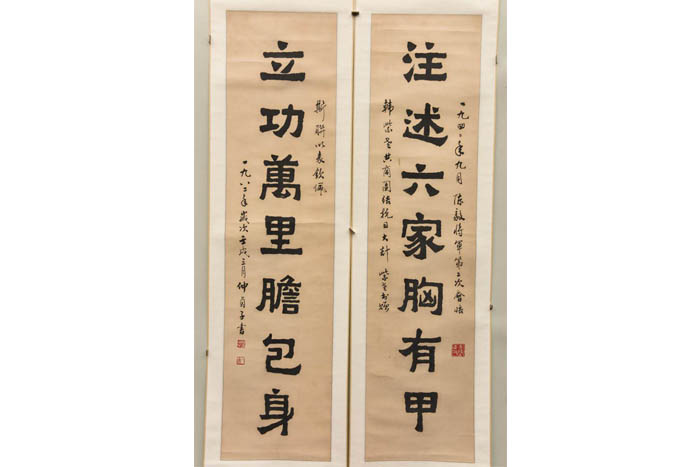 一九四〇年九月 陳毅將軍第二次會晤
注述六家胸有甲
韓紫老共商團結抗日大計 紫老書贈
斯聯以表欽佩
立功萬里膽包身
一九八二年歲次壬戌三月仲貞子書